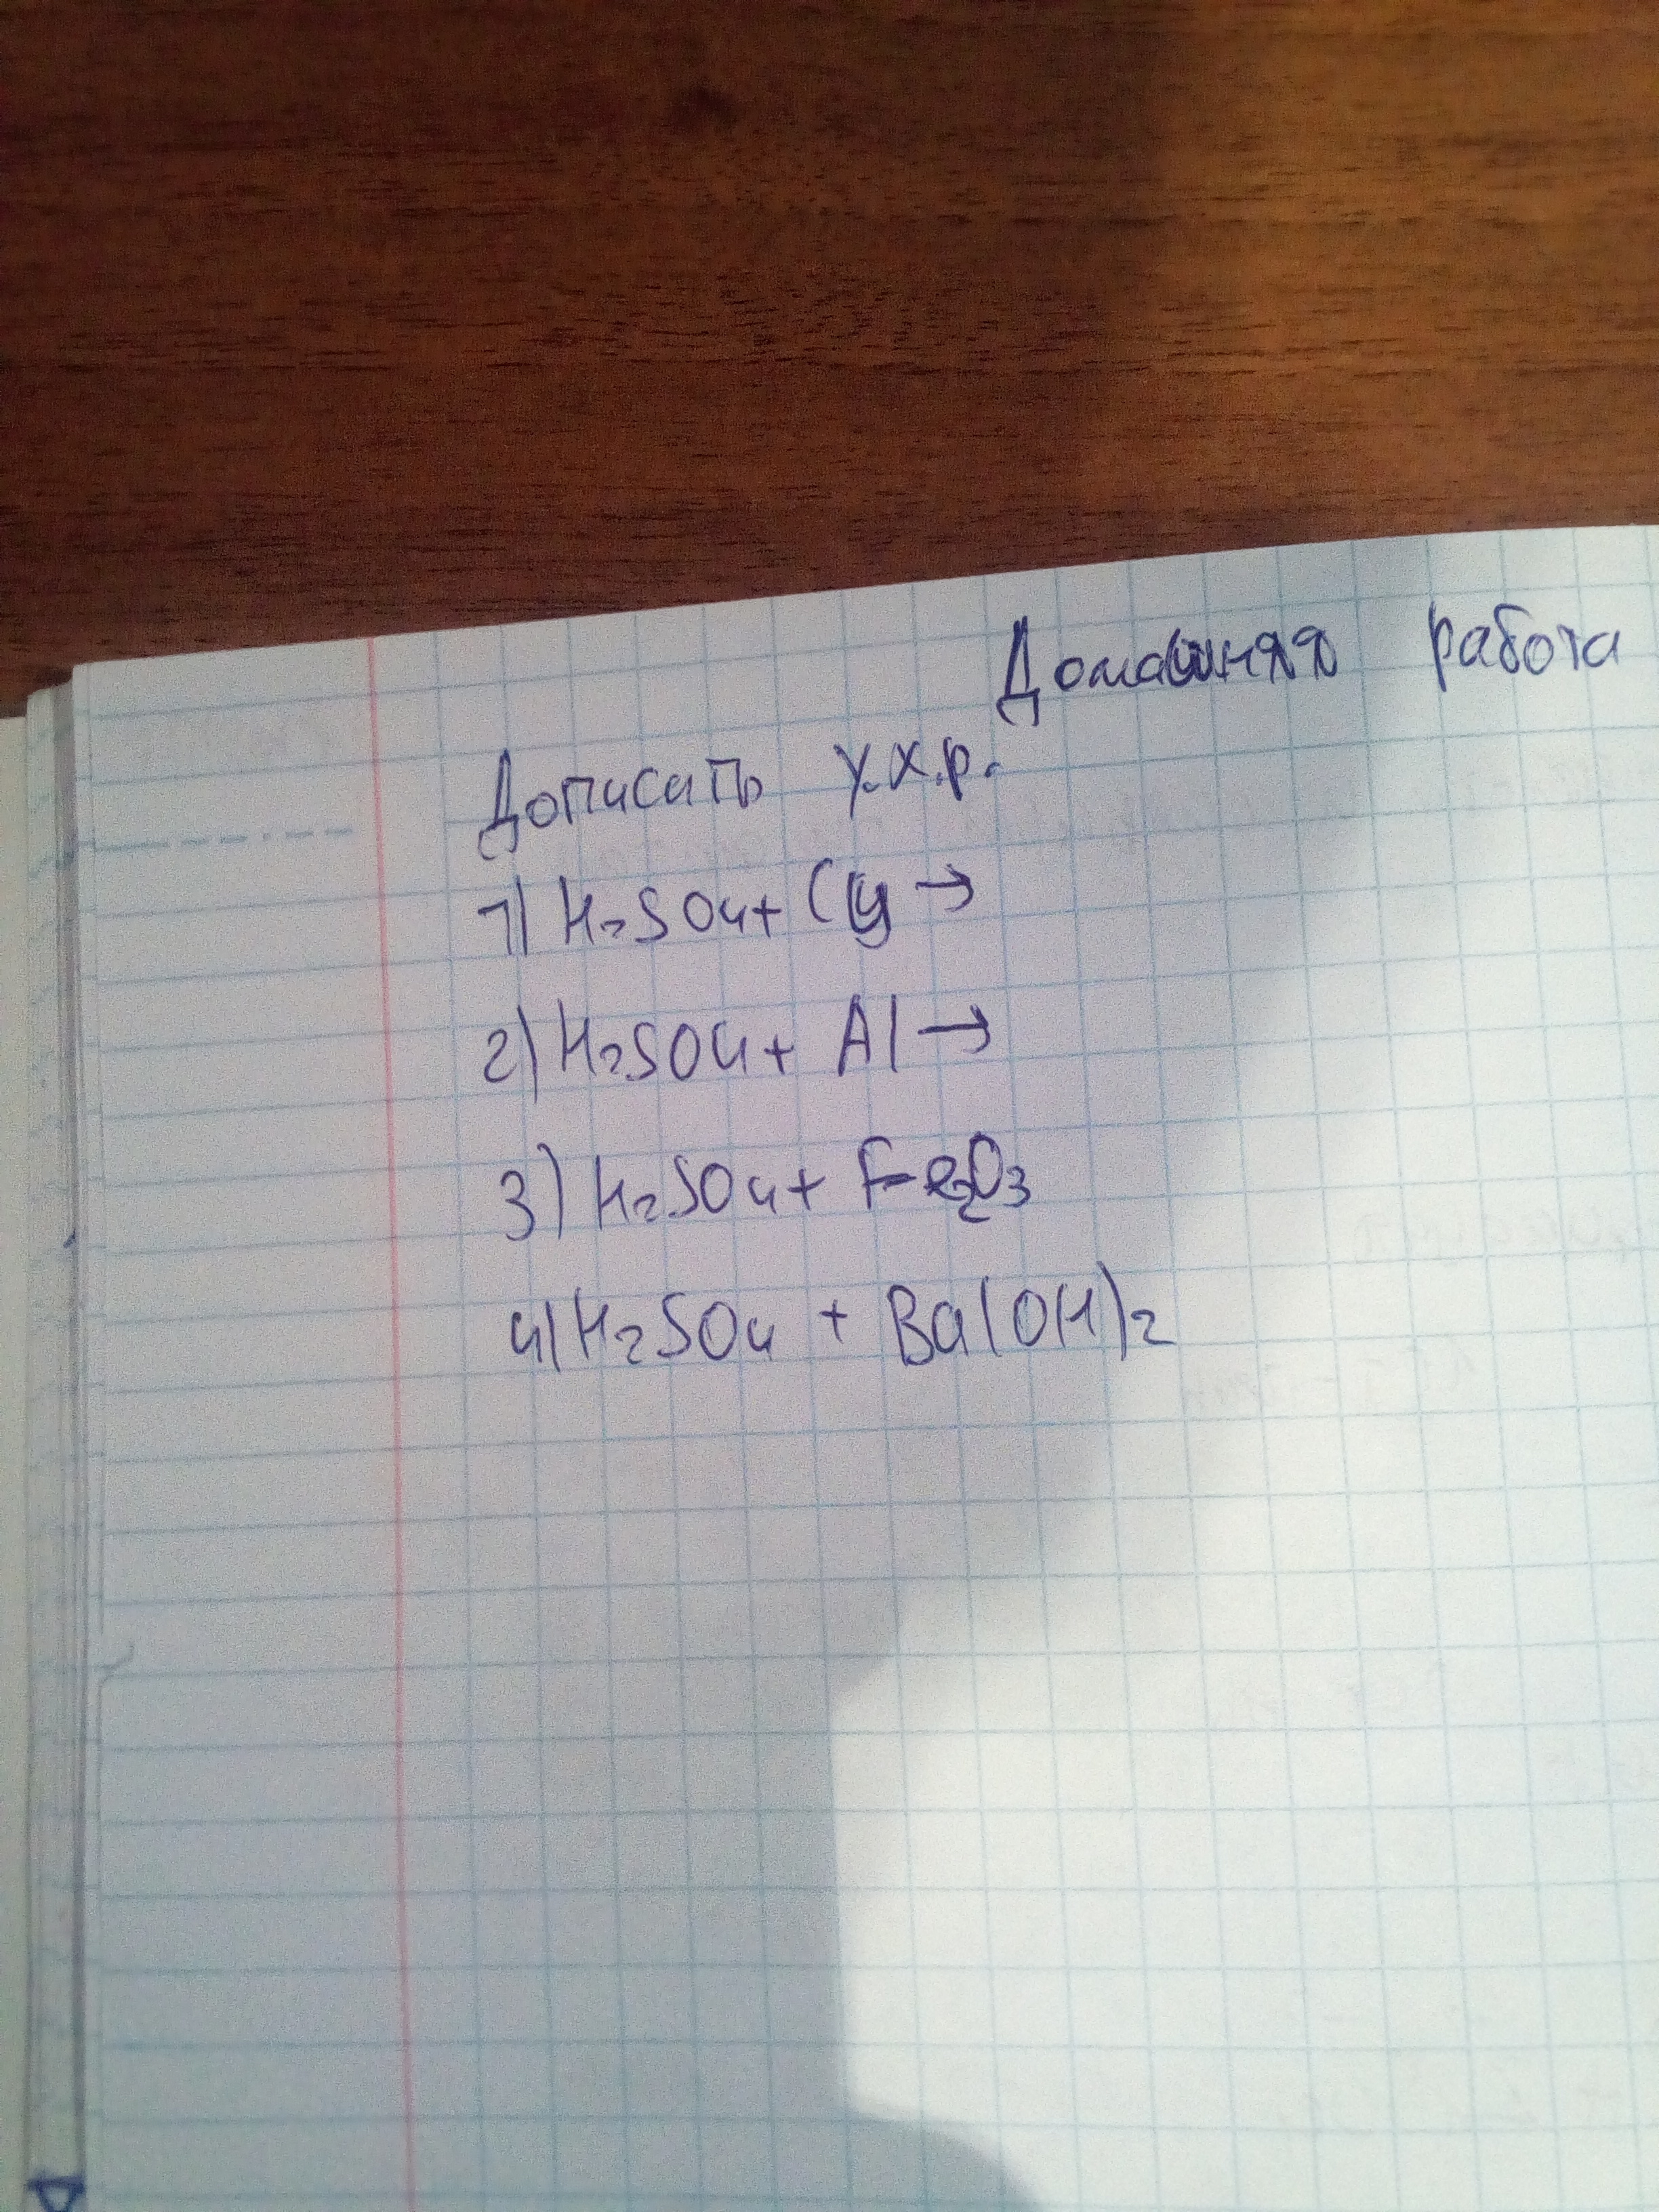 Домашняя работа
Дописать у.х.р.
1) H2SO4+ Cu →
2) H2SO4+ Al →
3) H2SO4+ Fe2O3
4) H2SO4 + Ba(OH)2